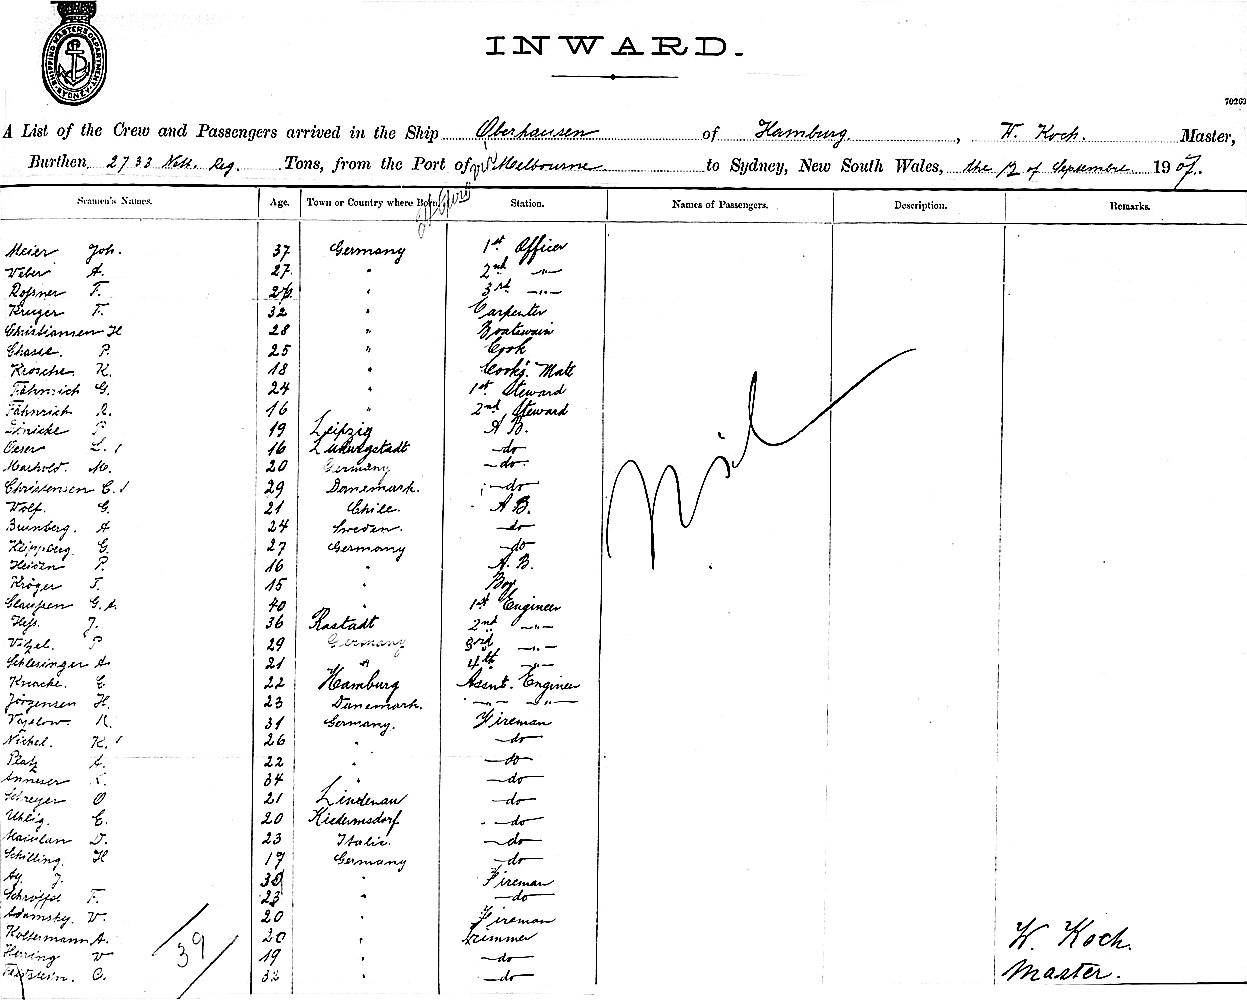 SHIPPING MASTER'S DEPARTMENT SYDNEY
INWARD.
70263
A List of the Crew and Passengers arrived in the Ship Oberhausen of Hamburg, W. Koch. Master,
Burthen 2733 Nett. Reg. Tons, from the Port of Melbourne to Sydney, New South Wales, the 12 of Septembre 1907.
Seamen's Names. Age. Town or Country where Born. Station. Names of Passengers. Description. Remarks.
Meier Joh. 37 Germany 1st Officer
Weber A. 27 " 2nd -"-
Rossner F. 26 " 3rd -"-
Kruger F. 32 " Carpenter
Christiansen H 28 " Boatswain
Chasse. P. 25 " Cook
Krosche K. 18 " Cook's Mate
Fähnrich G. 24 " 1st Steward
Fähnrich R. 16 " 2nd Steward
Linicke P. 19 Leipzig A B.
Oeser L. 16 Ludwigstadt do
Machold. M. 20 Germany do.
Christensen C. 29 Danemark. do
Wolf. G. 21 Chile. A B.
A 24 Sweden. do
G. 27 Germany do
Heiden P. 16 " A. B.
Kröger F. 15 " Boy
Claussen G. A. 40 " 1st Engineer
Hess. J. 36 Rastadt 2nd -"-
P 29 Germany 3rd -"-
Schlesinger A. 21 " 4th -"-
Knacke. E. 22 Hamburg Assnt. Engineer
Jörgensen H. 23 Danemark. -"- -"-
R. 31 Germany. Fireman
Nickel. K. 26 " do
Platz A. 22 " do
Anneser 34 " do
Schreyer O 21 Lindenau do
Uhlig. E. 20 do
D. 23 Italie. do
Schilling. H 17 Germany do
J. " Fireman
Schröffel F. 23 " do
Adamsky. W. 20 " Fireman
Koltermann A. 20 " trimmer
Herring W 19 " do
C. 32 " do
Nil
39
W. Koch.
Master.